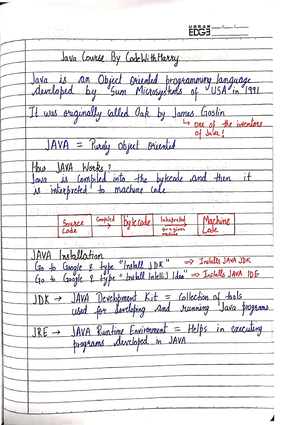 URBAN
EDGE
Java Course By CodeWithHarry
Java is an Object Oriented programming language
developed by Sum Microsystems of USA in 1991
It was originally called Oak by James Goslin
↳ one of the inventors
of Java!
JAVA = Purely Object oriented
How JAVA Works?
Java is compiled into the bytecode and then it
is interpreted to machine code
Source Code → Compiled → Bytecode → Interpreted → Machine Code
JAVA Installation
Go to Google & type "Install JDK" ⇒ Installs JAVA JDK
Go to Google & type "Install IntelliJ Idea" ⇒ Installs JAVA IDE
JDK → JAVA Development Kit = Collection of tools
used for developing and running Java programs
JRE → JAVA Runtime Environment = Helps in executing
programs developed in JAVA